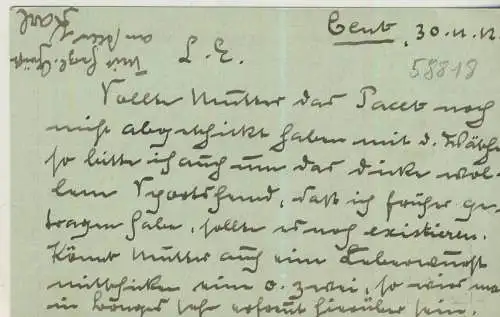 Cent, 30.11.12
58818
L. E.
Sollte Mutter das Packt noch
nicht abgeschickt haben mit d. Wäsche
so bitte ich auch um das dicke wol-
lene Sportshemd, daß ich früher ge-
tragen habe, sollte es noch existieren.
Könnt Mutter auch eine Leberwurst
mitschicken eine o. zwei, so wird man
in sehr erfreut hierüber sein.
Karl